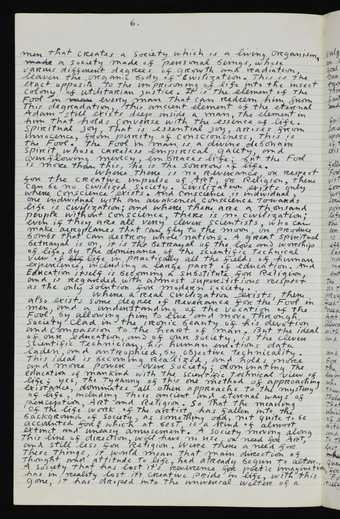 6.
men that creates a Society which is a living organism,
made a society made of personal beings, whose
various different degrees of growth and radiation,
leaven the organic body of Civilization. This is the
exact opposite to the imprisoning of life into the insect
colony of utilitarian justice. It is the element of the
Fool in every man that can redeem him from
this degradation, this ancient element of the eternal
Adam still exists deep inside a man, the element in
him that holds converse with the essence of life.
Spiritual Joy, that is essential joy arises from
innocence, from purity of Consciousness, this is
the Fool. The Fool in man is a divine hoboban
Spirit, whose careless empirical gaiety, and
overflowing mercy, embraces life; but the Fool
is more than this, he is a sorrow of life.
Where there is no reverence, or respect
for the creative impulse of Art, or Religion, there
can be no civilized Society. Civilization exists only
where Conscience exists. And Conscience is individual
one individual with an awakened Conscience towards
life is Civilization; and where there are a thousand
people without Conscience, there is no civilization;
even if they are all very clever Scientists, who can
make aeroplanes that can fly to the moon, or produce
bombs that can destroy whole nations. A great spiritual
betrayal is on, it is the betrayal of the love and worship
of life, by the dominance of the scientific technical
view of life in practically all the fields of human
experience, including a large part of education. And
Education itself is becoming a substitute for Religion
and is regarded with almost superstitious respect
as the only solution for modern society.
Where a real Civilization exists, there
also exists some degree of Reverence for the Fool in
men, and an understanding of the vocation of the
Fool, by allowing him to live and move through
Society clad in the ironic beauty of his devotion
and Compassion to the heart of man. But the ideal
of our Education, and of our Society, is the clever
Scientific Technician, his human emotions data
laden, and atrophied, by objective technicality.
This ideal is becoming realized, and holds more
and more power over Society; dominating the
education of mankind with the scientific technical view of
life; yes, the Tyranny of this one method of approaching
existence, dominates all other approaches to the mystery
of life, including those ancient and eternal ways of
perception, Art and Religion. So that the meaning
of the life work of the artist has fallen into the
background of Society, as something odd, not quite to be
accounted for, which at best, is a kind of almost
extinct and uneasy amusement. A society moving along
this line of direction, will have no use, or need for Art,
and still less for Religion. Were there a need for
these things, it would mean that main direction of
thought and attitude to life, had already begun to alter.
A society that has lost its reverence for poetic imagination
has in reality lost its creative pride in life, with this
gone, it has dropped into the universal welter of a